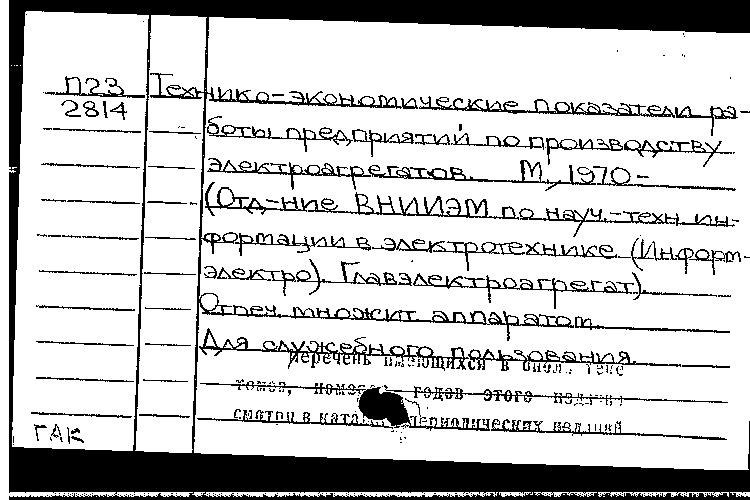 П23 Технико-экономические показатели ра-
2814 боты предприятий по производству
электроагрегатов. М., 1970-
(Отд-ние ВНИИЭМ по науч.-техн. ин-
формации в электротехнике (Информ-
электро). Главэлектроагрегат).
Отпеч. множит. аппаратом.
Для служебного пользования.
Перечень имеющихся в
томов, годов этого издания
смотри в периодических изданий
ГАК